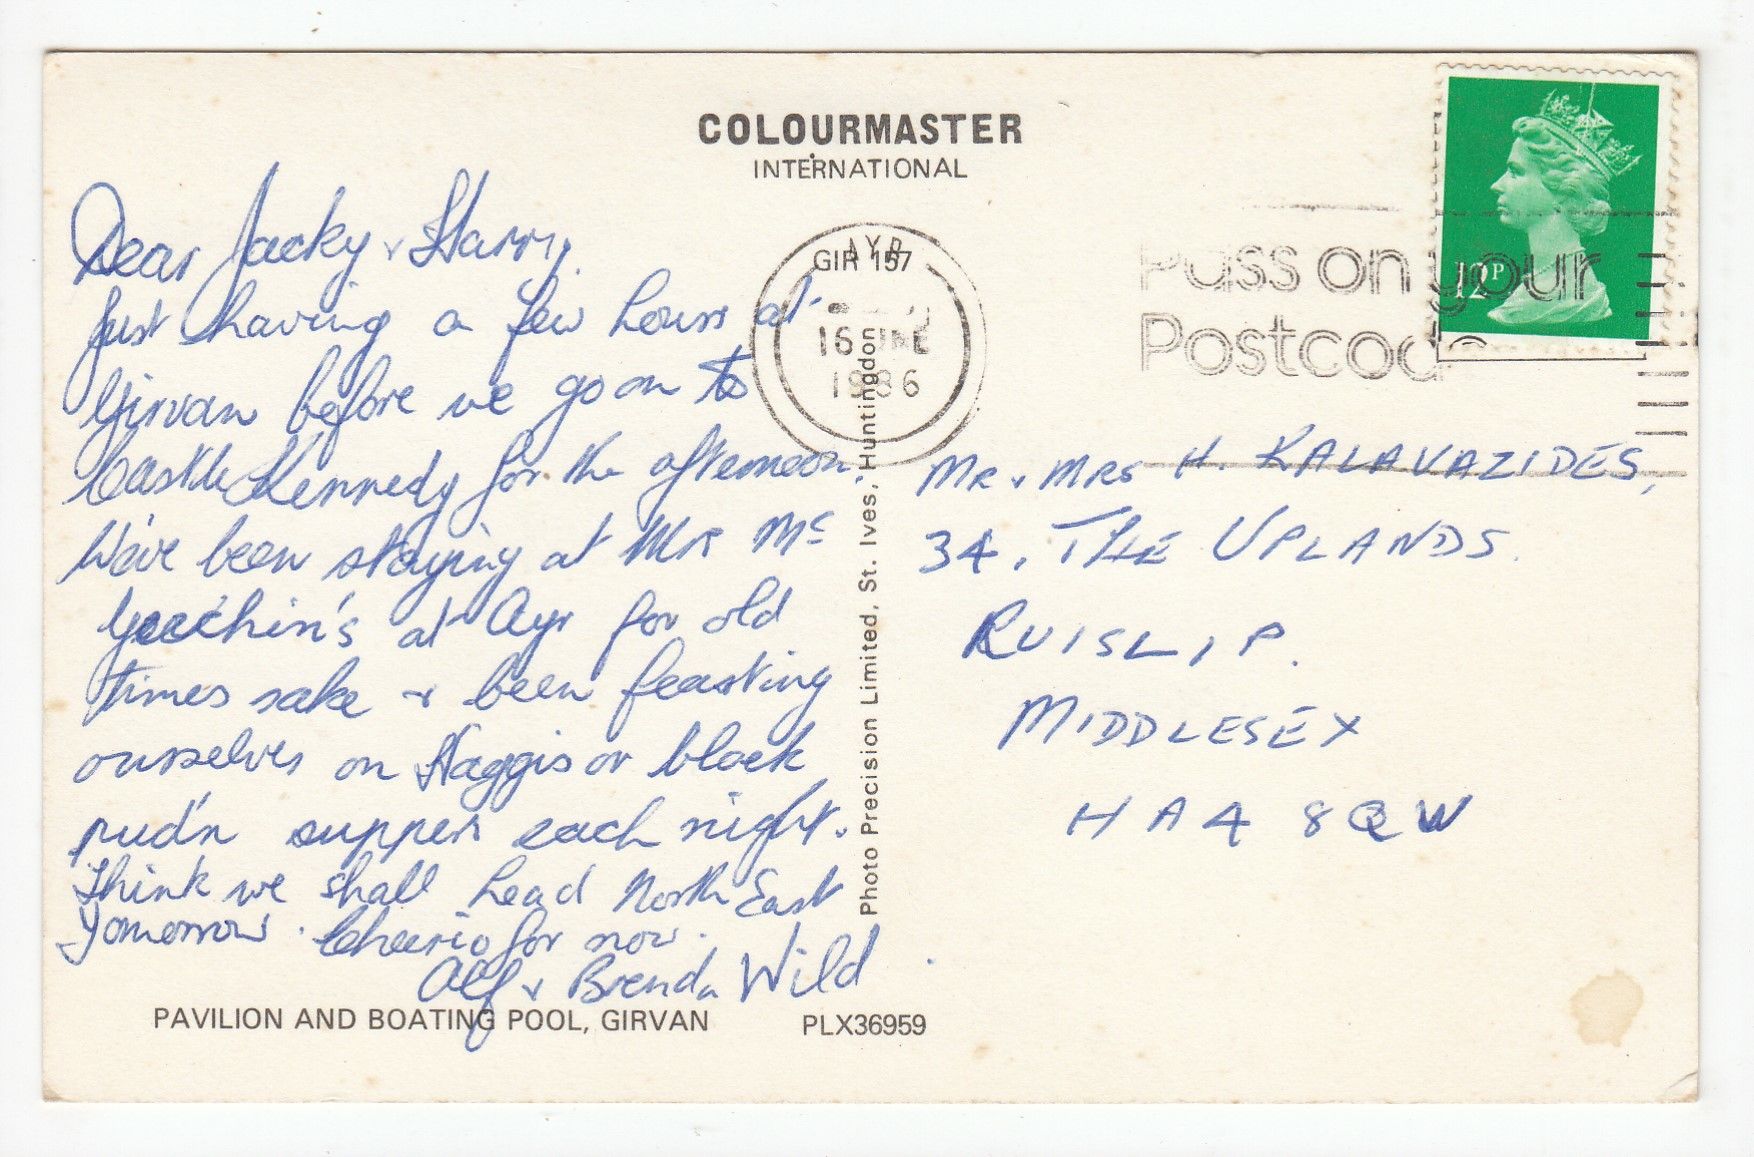 COLOURMASTER
INTERNATIONAL
Dear Jacky & Harry,
Just having a few hours at
Girvan before we go on to
Castle Kennedy for the afternoon.
We've been staying at Mrs Mc
at Ayr for old
times sake & been feasting
ourselves on Haggis or black
pud'n suppers each night.
Think we shall head North East
Tomorrow. Cheerio for now.
Alf & Brenda Wild
PAVILION AND BOATING POOL, GIRVAN
PLX36959
Photo Precision Limited, St. Ives, Huntingdon
GIR 157
AYR
16 JNE
1986
Pass on your
Postcode
12P
MR & MRS H. KALAVAZIDES,
34, THE UPLANDS.
RUISLIP.
MIDDLESEX
HA4 8QW